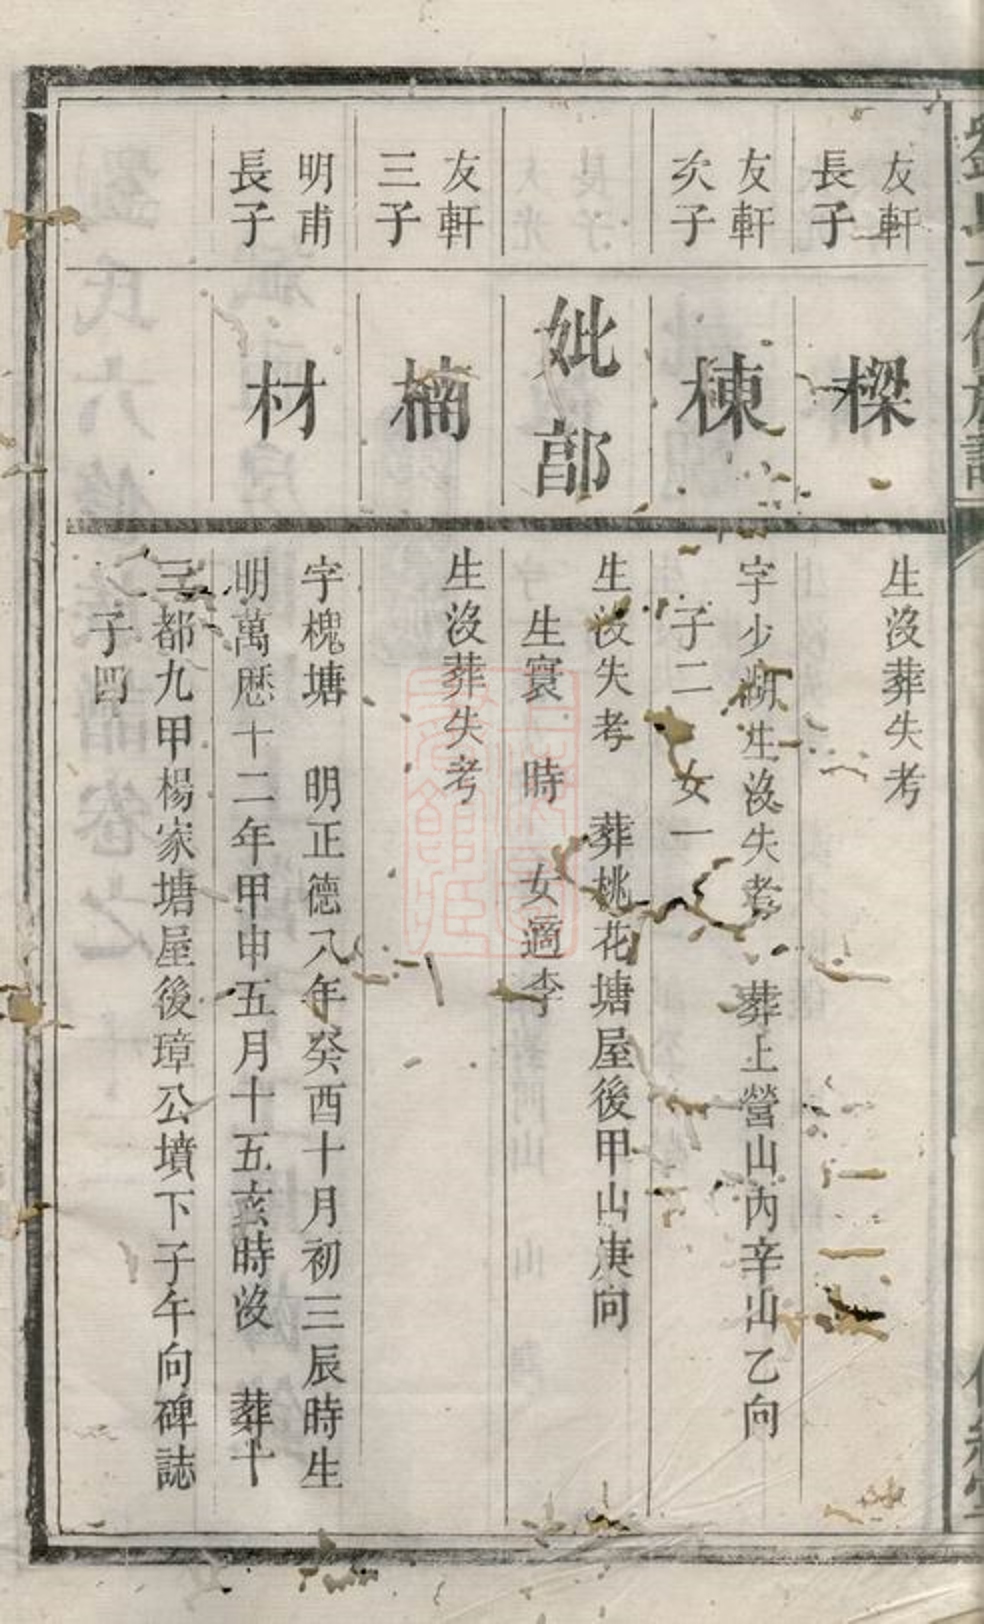 友軒
長子
樑
生沒葬失考
友軒
次子
棟
字少湖生沒失考 葬上營山內辛山乙向
子二 女一
妣郭
生沒失考 葬桃花塘屋後甲山庚向
生寰 時 女適李
友軒
三子
楠
生沒葬失考
明甫
長子
材
字槐塘 明正德八年癸酉十月初三辰時生
明萬歷十二年甲申五月十五亥時沒 葬十
三都九甲楊家塘屋後璋公墳下子午向碑誌
子四